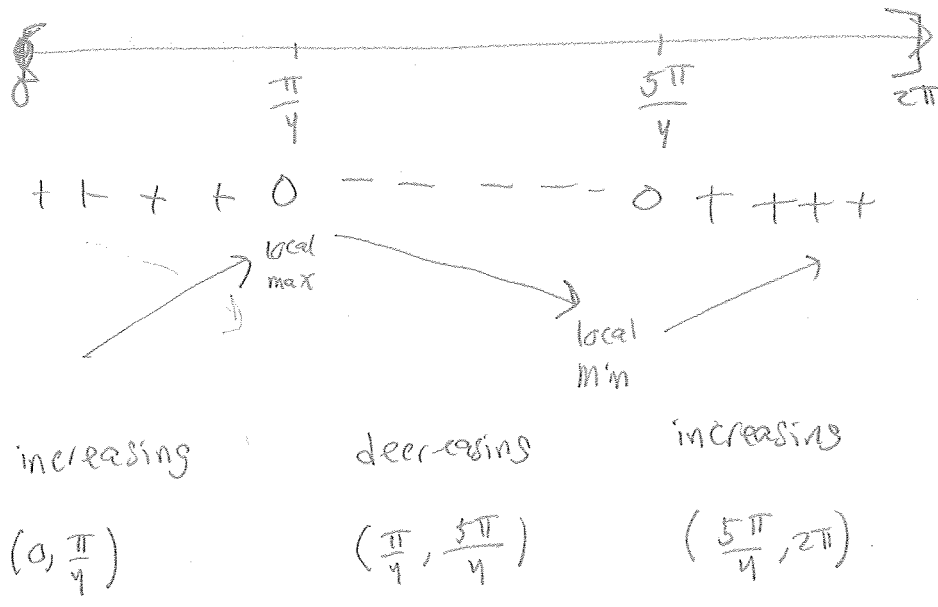 [ 0 π/4 5π/4 ] 2π
+ + + + 0 - - - - - 0 + + + +
local max
local min
increasing decreasing increasing
(0, π/4) (π/4, 5π/4) (5π/4, 2π)